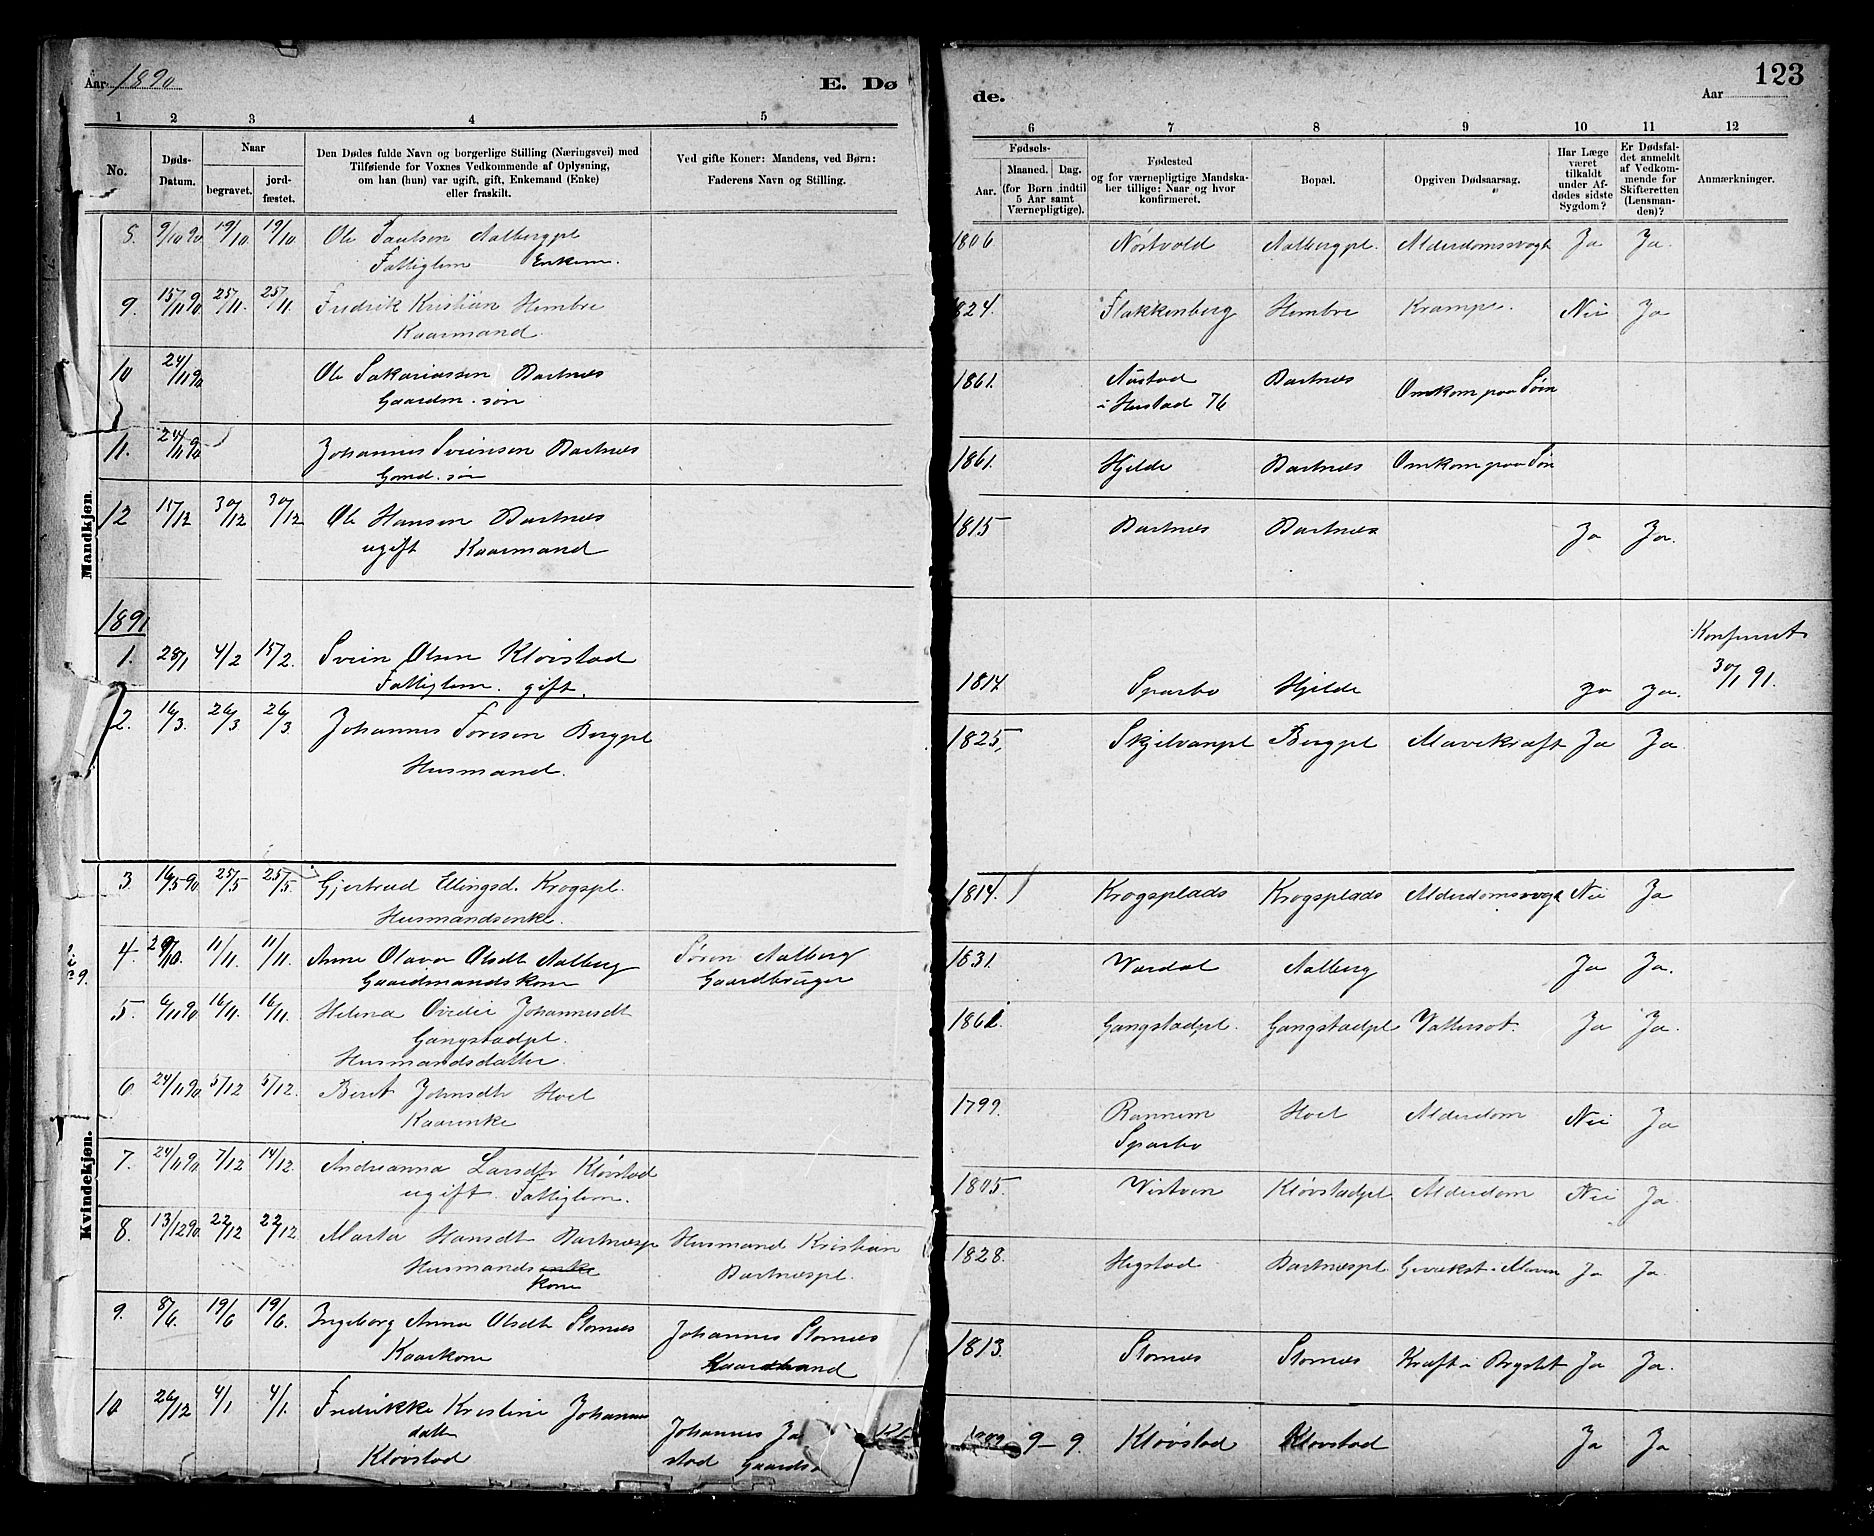 Aar 1890
E. Dø
de.
Aar
123
1 2 3 4 5 6 7 8 9 10 11 12
No.
Døds-
Datum.
Naar
begravet.
jord-
fæstet.
Den Dødes fulde Navn og borgerlige Stilling (Næringsvei) med
Tilføiende for Voxnes Vedkommende af Oplysning,
om han (hun) var ugift, gift, Enkemand (Enke)
eller fraskilt.
Ved gifte Koner: Mandens, ved Børn:
Faderens Navn og Stilling.
Fødsels-
Aar.
Maaned. Dag.
(for Børn indtil
5 Aar samt
Værnepligtige).
Fødested
og for værnepligtige Mandska-
ber tillige: Naar og hvor
konfirmeret.
Bopæl.
Opgiven Dødsaarsag.
Har Læge
været
tilkaldt
under Af-
dødes sidste
Sygdom?
Er Dødsfal-
det anmeldt
af Vedkom-
mende for
Skifteretten
(Lensman-
den)?
Anmærkninger.
Mandkjøn.
8. 9/10 90 19/10. 19/10. Ole Paulsen Aalbergpl 1806 Nøstvold Aalbergpl. Alderdomssvagh Ja Ja.
Fattiglem Enkem.
9. 15/11 90 25/11. 25/11. Fredrik Kristian Hembre 1824. Flakkenberg Hembre Krampe. Nei Ja
Kaarmand.
10 24/11 90 Ole Sakariassen Bartnes 1861. Austad Bartnes Omkom paa Søen
Gaardm. søn i Hustad 76
11. 24/11 90 Johannes Sveinsen Bartnes 1861. Hjelde Bartnes Omkom paa Søn
Gmd. søn
12 15/12 30/12 30/12 Ole Hansen Bartnes 1815 Bartnes Bartnes Ja Ja.
ugift Kaarmand
1891
1. 28/1 4/2 15/2. Svein Olsen Kløvstad 1814 Sparbo Hjelde Ja Ja. 30/1 91.
Fattiglem. gift.
2. 16/3. 26/3 26/3. Johannes Toresen Bergpl 1825. Skjelvanpl Bergpl Mavekræft Ja Ja
Husmand.
Kvindekjøn.
3. 16/5 90 25/5 25/5. Gjertrud Ellingsd. Krogspl. 1814. Krogsplads Krogsplads Alderdomssvagh Nei Ja
Husmandsenke.
4. 29/10. 11/11. 11/11. Anne Olava Olsdt Aalberg Søren Aalberg 1831. Værdal Aalberg Ja Ja.
Gaardmandskone Gaardbruger
5. 6/11 90 16/11. 16/11. Helena Johannesdt Gangstadpl. Gangstadpl Vattersot. Ja Ja.
Gangstadpl.
Husmandsdatter.
6 24/11 90 5/12 5/12. Berit Johnsdt Hoel 1799. Rannem Hoel Alderdom Nei Ja
Kaarenke Sparbo
7. 24/11 90 7/12 14/12. Andrianna Larsdtr Kløvstad 1805. Vistven Kløvstadpl. Alderdom Nei Ja.
ugift. Fattiglem.
8. 13/12 90. 22/12 22/12. Marta Hansdt Bartnespl Husmand Kristian 1828. Hegstad Bartnespl. Gevækst i Maven Ja Ja.
Husmandsenke Bartnespl.
kone
9. 8/6. 19/6 19/6. Ingeborg Anna Olsdt Stornes Johannes Stornes 1813. Stornes Stornes Kræft i Brystet Ja Ja.
Kaarkone Kaarmand
10 26/12 4/1 4/1. Fredrikke Kristine Johannes Johannes 9 - 9. Kløvstad Kløvstad Ja Ja
datter
Kløvstad stad